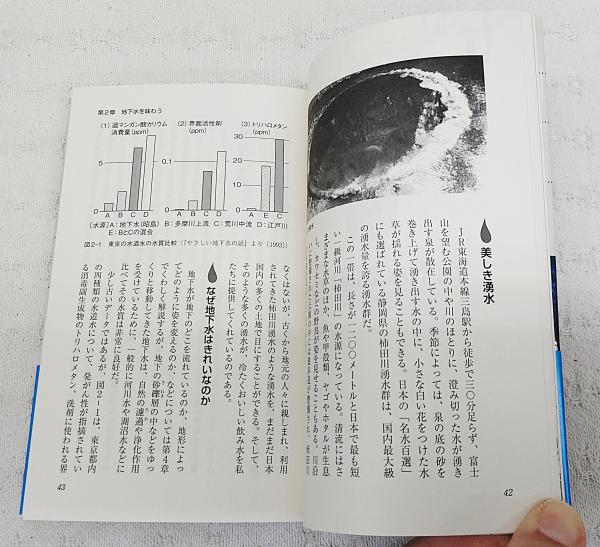 美しき湧水
JR東海道本線三島駅から徒歩で三〇分足らず、富士
山を望む公園の中や川のほとりに、澄み切った水が湧き
出す泉が散在している。季節によっては、泉の底の砂を
巻き上げて湧き出す水の中に、小さな白い花をつけた水
草が揺れる姿を見ることもできる。日本の「名水百選」
にも選ばれている静岡県の柿田川湧水群は、国内最大級
の湧水量を誇る湧水群だ。
この一帯は、長さが一二〇〇メートルと日本で最も短
い一級河川「柿田川」の水源になっている。清流にはさ
まざまな水草のほか、魚や甲殻類、ヤゴやホタルが生息
し、カワセミなどの野鳥が姿を見せることもある。川沿
42
第2章 地下水を味わう
(1) 過マンガン酸カリウム
消費量(ppm)
(2) 界面活性剤
(ppm)
(3) トリハロメタン
(ppm)
5
0
0.1
0
30
15
0
A B C D
A B C D
A E C
[水源] A:地下水(昭島) B:多摩川上流 C:荒川中流 D:江戸川
E:BとCの混合
図2-1 東京の水道水の水質比較(『やさしい地下水の話』より(1993))
なくはないが、古くから地元の人々に親しまれ、利用
されてきた柿田川湧水のような湧水を、まだまだ日本
国内の多くの土地で目にすることができる。そして、
そのような多くの湧水が、冷たくおいしい飲み水を私
たちに提供してくれているのである。
なぜ地下水はきれいなのか
地下水が地下のどこを流れているのか、地形によっ
てどのように姿を変えるのか、などについては第4章
でくわしく解説するが、地下の砂礫層の中などをゆっ
くりと移動してきた地下水は、自然の濾過や浄化作用
を受けているために、一般的に河川水や湖沼水などに
比べてその水質は非常に良好だ。
少し古いデータではあるが、図2-1は、東京都内
の四種類の水道水について、発がん性が指摘されてい
る消毒副生成物のトリハロメタン、洗剤に使われる界
43